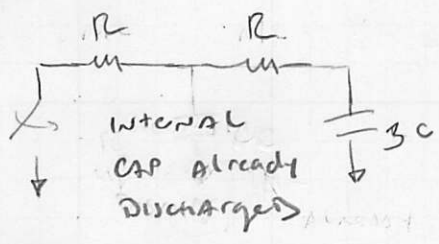 R R
INTERNAL
CAP Already
DISCHARGED
3C